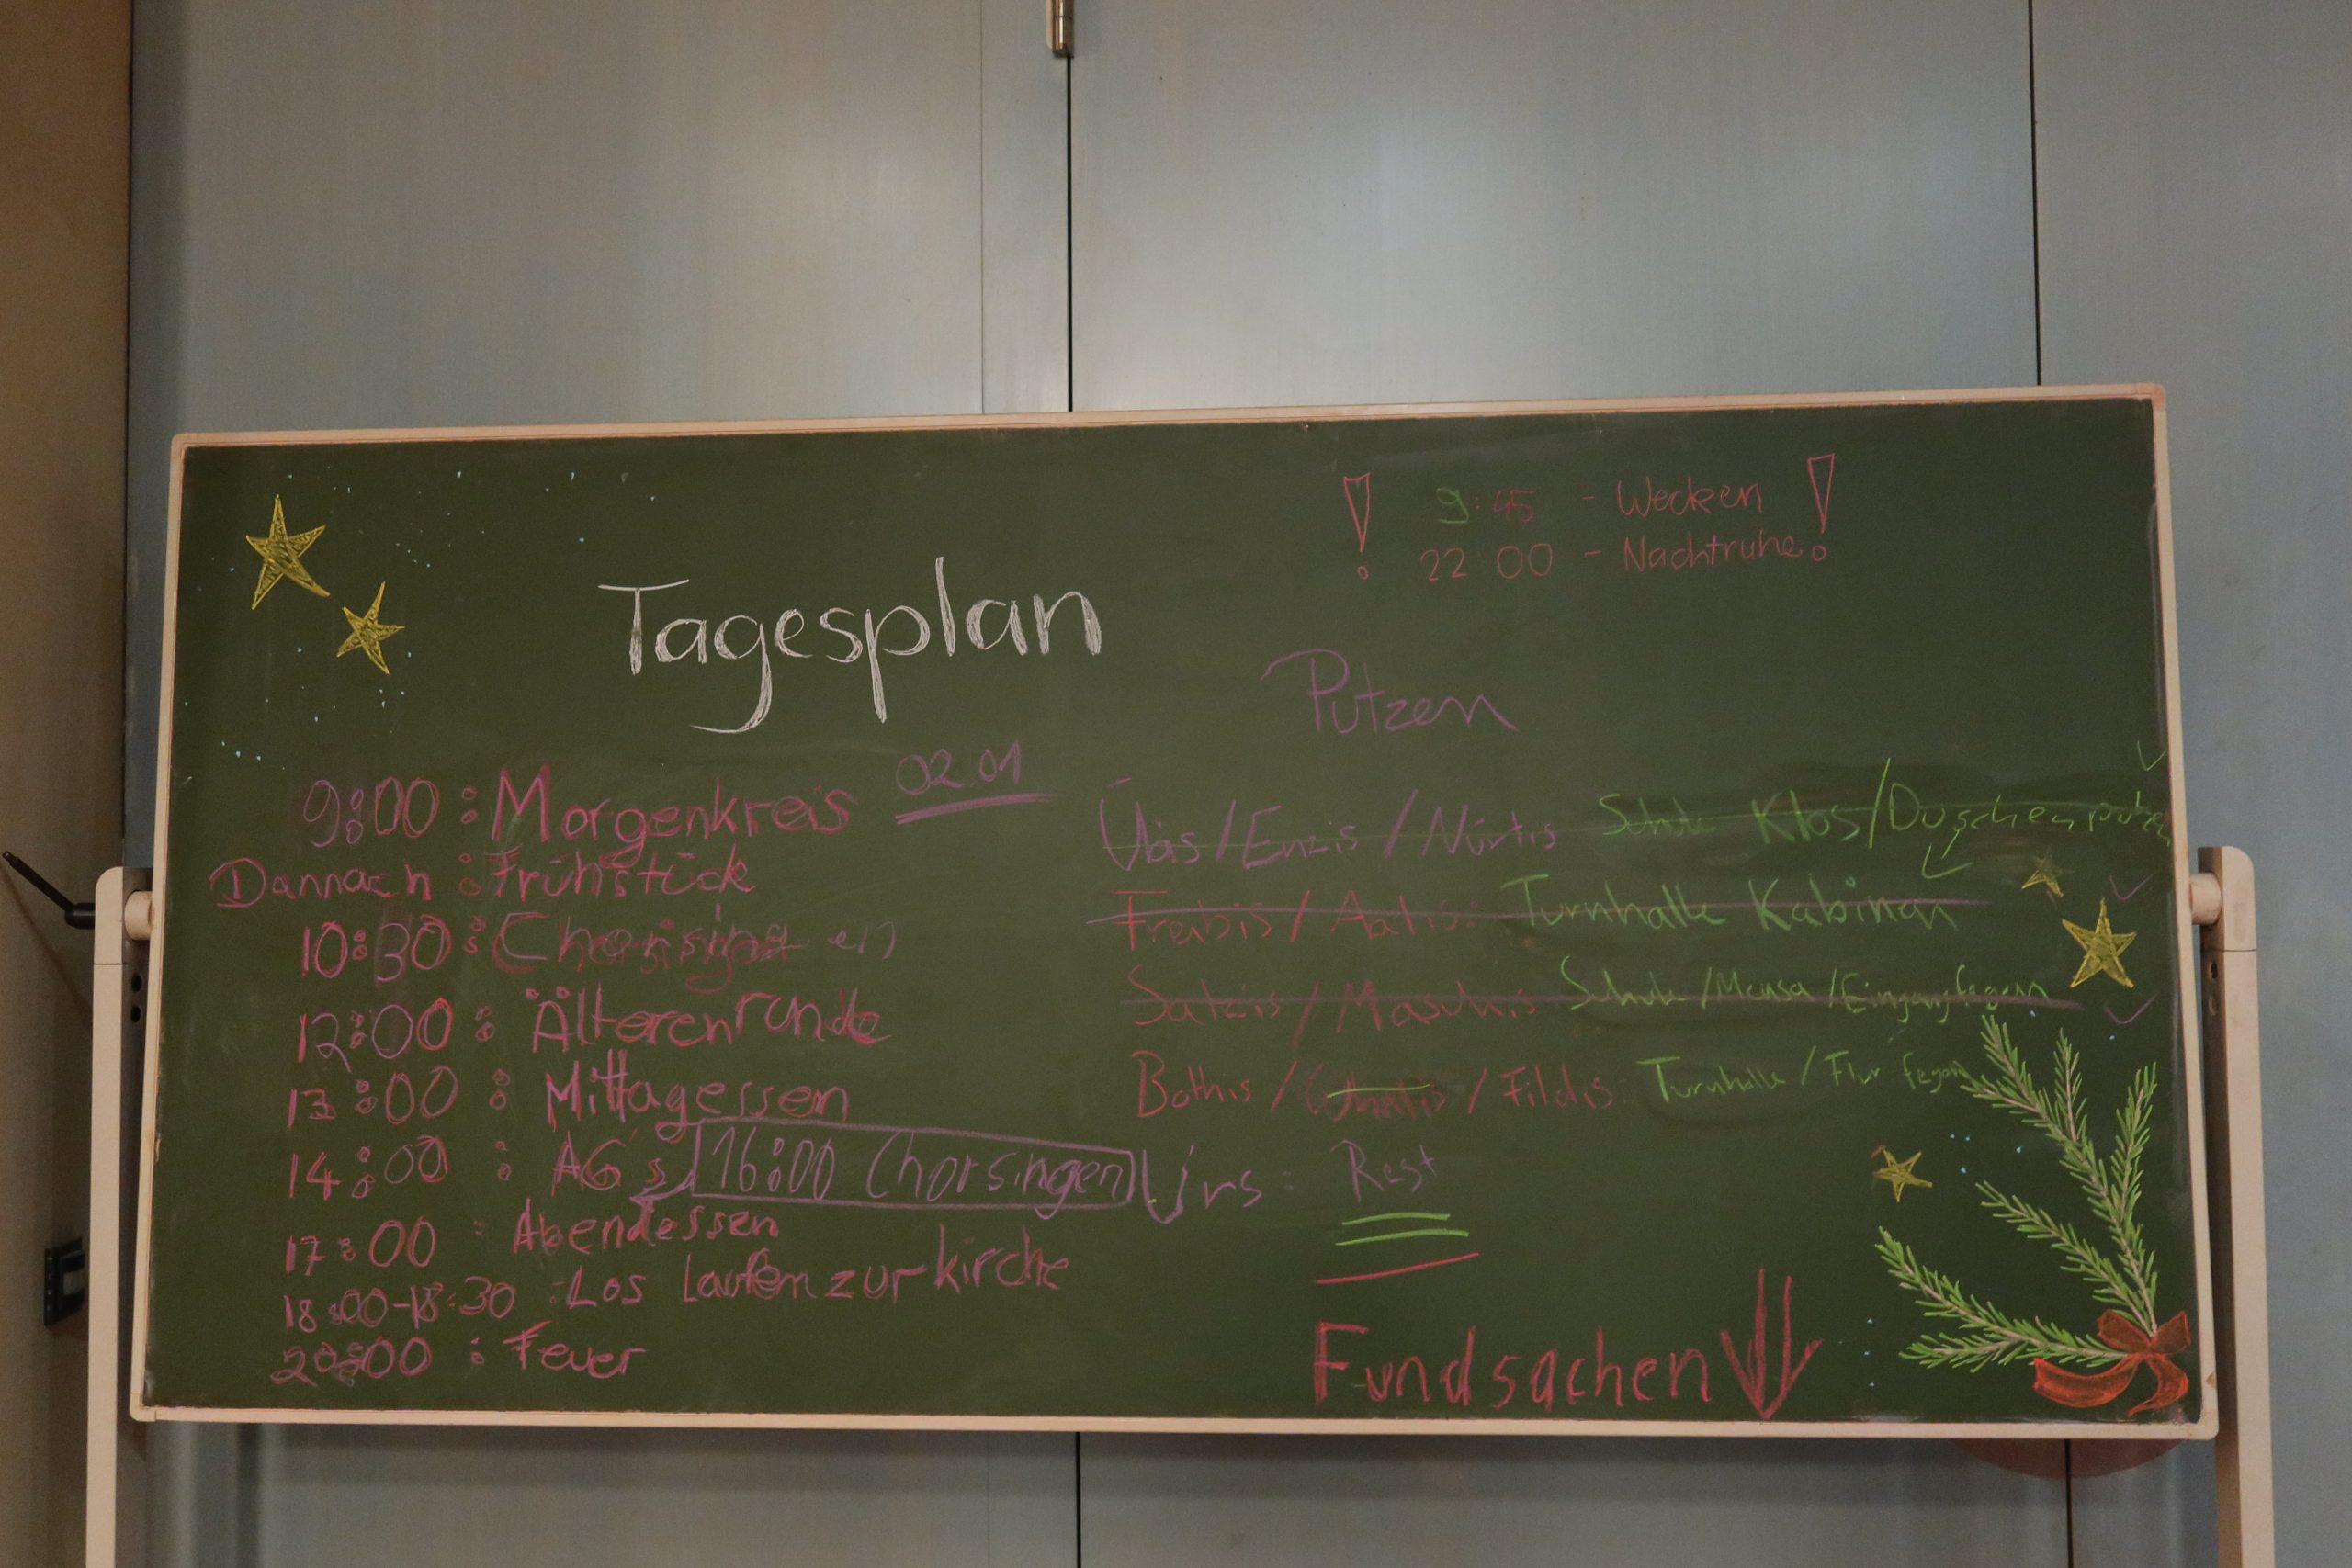 ! 9:45 - Wecken !
22:00 - Nachtruhe
Tagesplan
02.01
9:00 : Morgenkreis
Dannach : Frühstück
10:30 : Chorsingen
12:00 : Älterenrunde
13:00 : Mittagessen
14:00 : AG's 16:00 Chorsingen
17:00 : Abendessen
18:00-18:30 : Los Laufen zur kirche
20:00 : Feuer
Putzen
Übis/Enzis/Nürtis Schule Klos/Duschen putzen
Freibis/Aalis: Turnhalle Kabinen
Satzis/Maschis Schule/Mensa/Eingang fegen
Bothis/ /Fildis Turnhalle/Flur fegen
Urs: Rest
Fundsachen